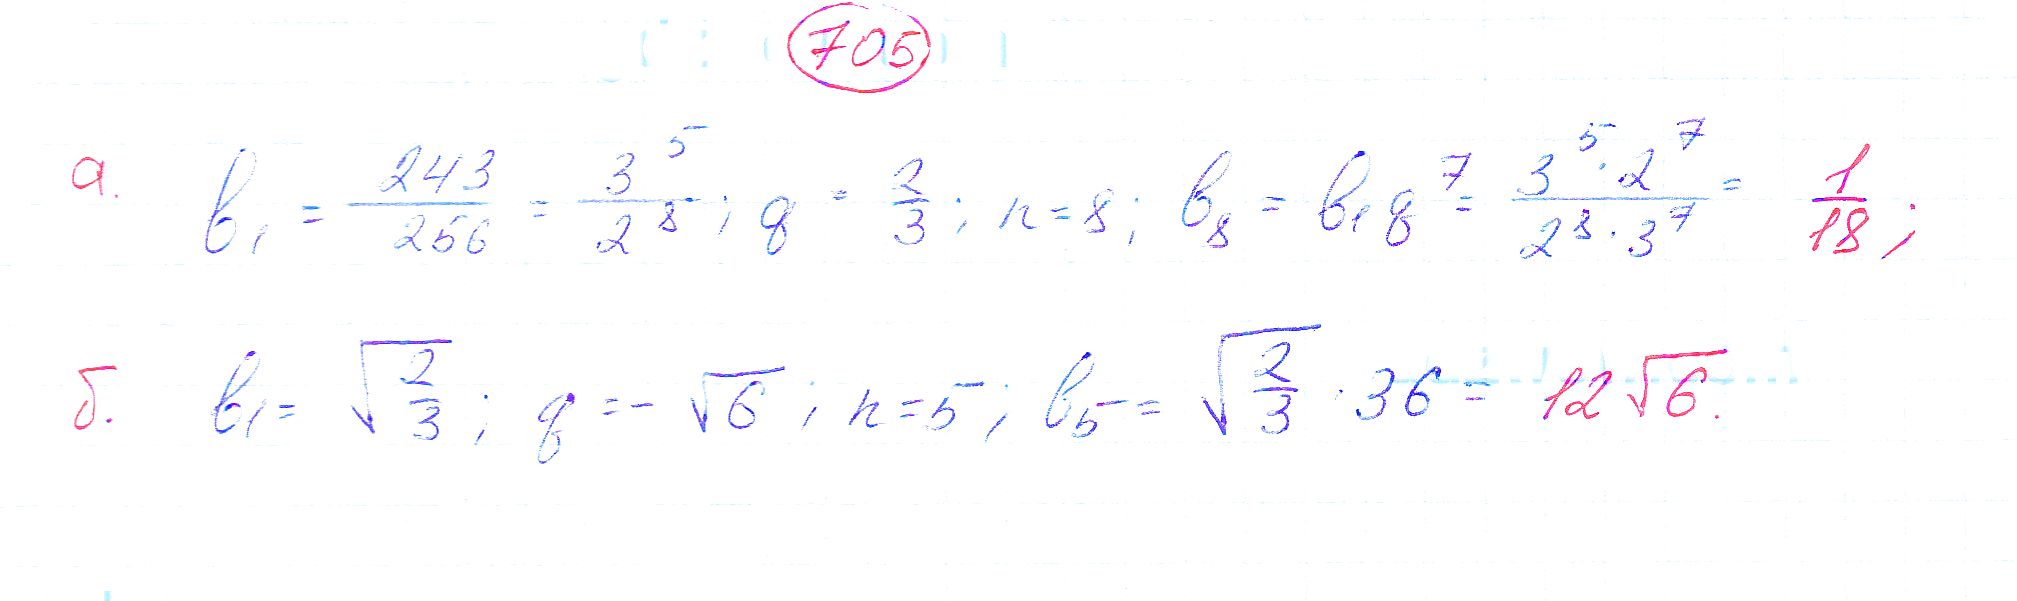 705
а. b₁ = 243/256 = 3⁵/2⁸; q = 2/3; n=8; b₈ = b₁q⁷ = (3⁵·2⁷)/(2⁸·3⁷) = 1/18;
б. b₁ = √(2/3); q = -√6; n=5; b₅ = √(2/3) · 36 = 12√6.